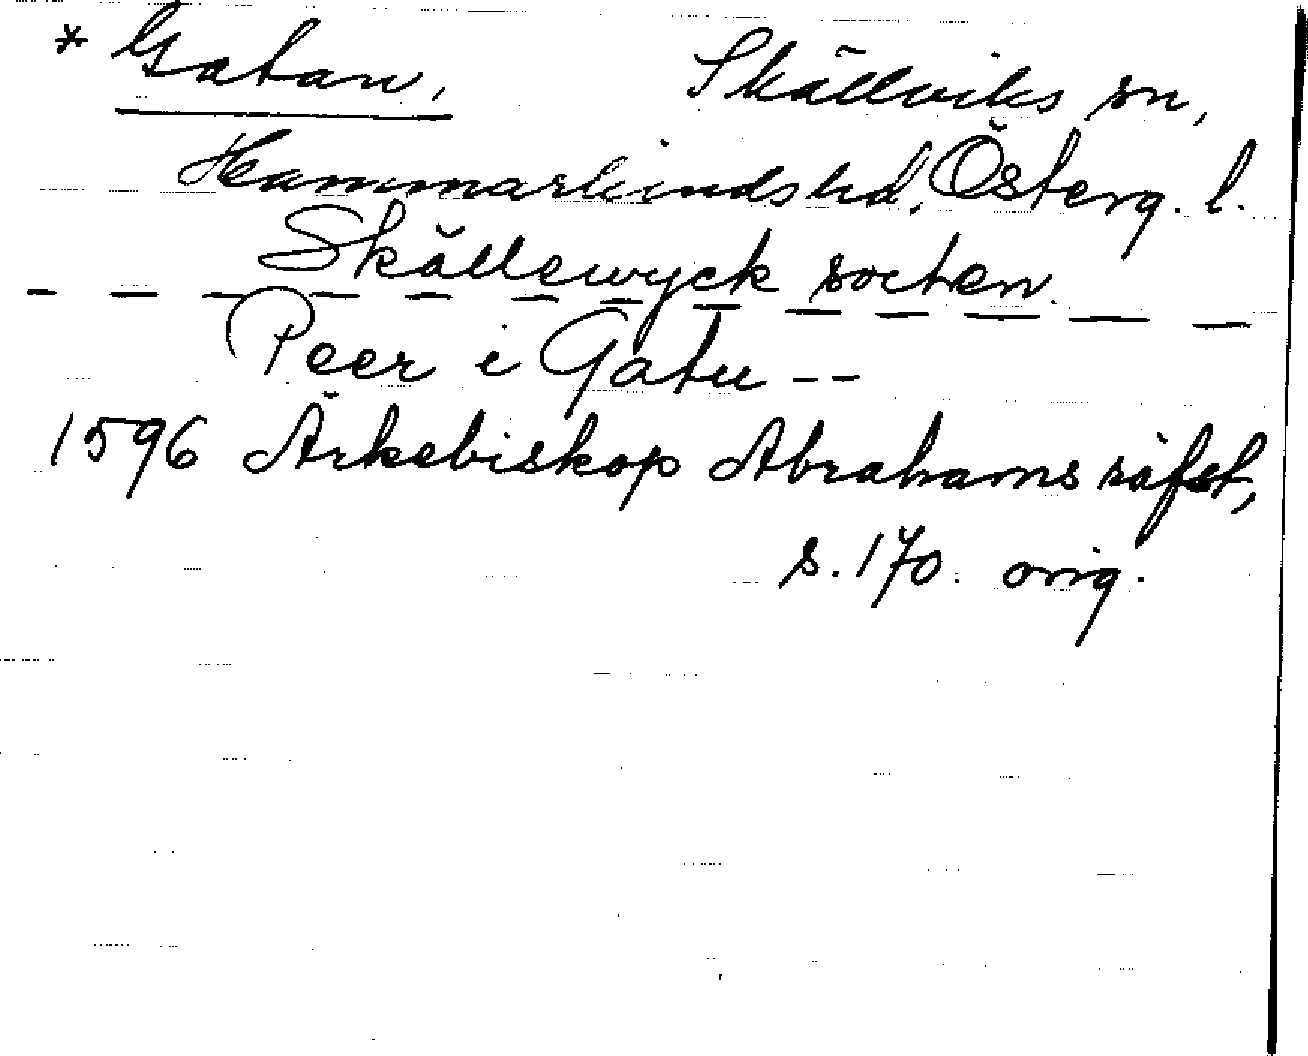 * Gatan, Skällviks sn,
Hammarkinds hd, Österg. l.
Skällewyck sochen.
Peer i Gatu --
1596 Ärkebiskop Abrahams räfst,
s. 170. orig.